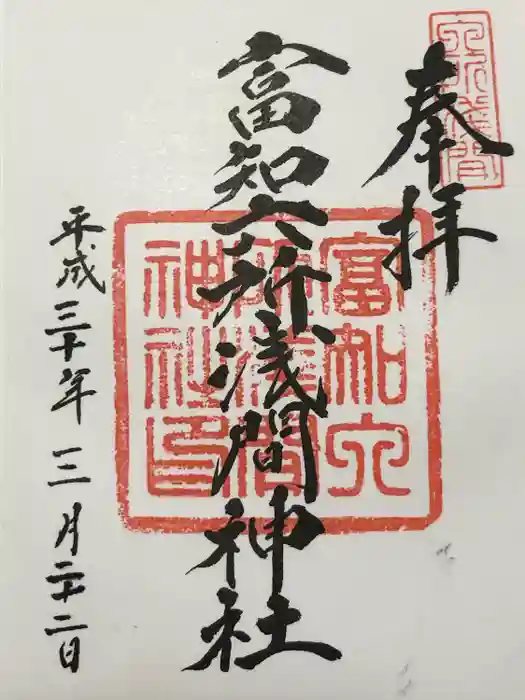 奉拝
六所浅間
富知六所浅間神社
富知六所浅間神社印
平成三十年三月二十二日